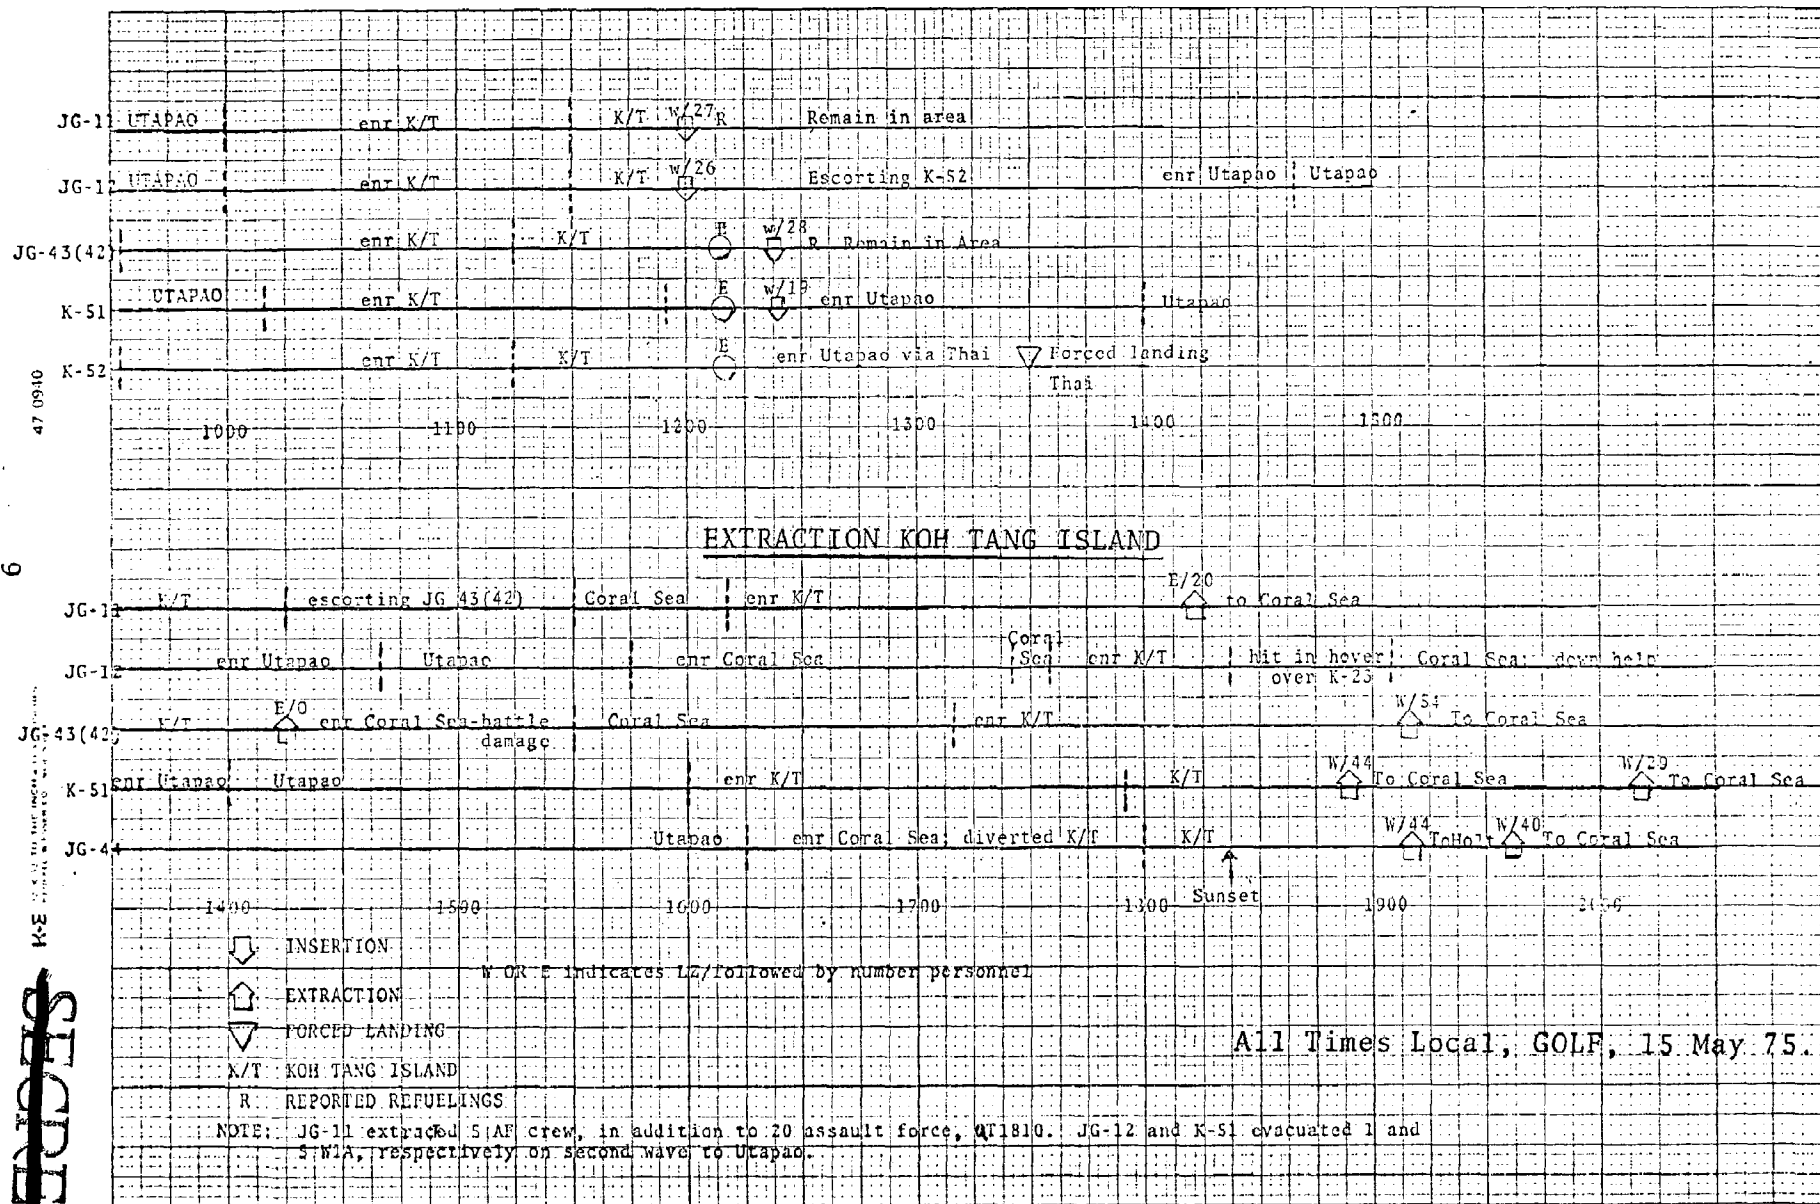 JG-11 UTAPAO enr K/T K/T W/27 R Remain in area
JG-12 UTAPAO enr K/T K/T W/26 Escorting K-52 enr Utapao Utapao
JG-43(42) enr K/T K/T E W/28 R Remain in Area
K-51 UTAPAO enr K/T E W/19 enr Utapao Utapao
K-52 enr K/T K/T E enr Utapao via Thai Forced landing
Thai
1000 1100 1200 1300 1400 1500
EXTRACTION KOH TANG ISLAND
JG-11 K/T escorting JG 43(42) Coral Sea enr K/T E/20 to Coral Sea
JG-12 enr Utapao Utapao enr Coral Sea Coral Sea enr K/T hit in hover Coral Sea; down
over K-23
JG-43(42) K/T E/0 enr Coral Sea-battle Coral Sea enr K/T W/54 To Coral Sea
damage
K-51 enr Utapao Utapao enr K/T K/T W/44 To Coral Sea W/29 To Coral Sea
JG-44 Utapao enr Coral Sea; diverted K/T K/T W/44 ToHolt W/40 To Coral Sea
Sunset
1400 1500 1600 1700 1800 1900 2000
INSERTION
W OR E indicates LZ/followed by number personnel
EXTRACTION
FORCED LANDING
K/T KOH TANG ISLAND
R REPORTED REFUELINGS
All Times Local, GOLF, 15 May 75.
NOTE: JG-11 extracted 5 AF crew, in addition to 20 assault force, AT1810. JG-12 and K-51 evacuated 1 and
5 WIA, respectively on second wave to Utapao.
47 0940
6
K+E
SECRET